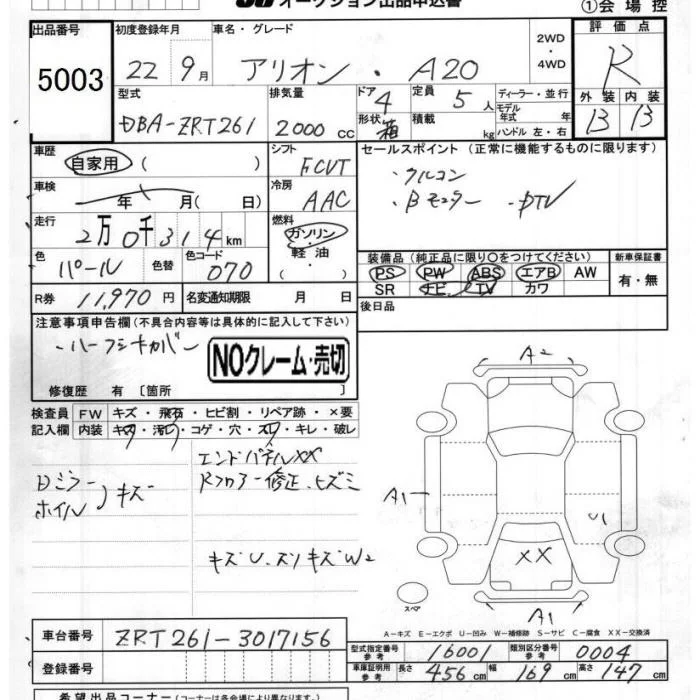 オークション出品申込書 ①会場控
出品番号 初度登録年月 車名・グレード 2WD ・ 4WD 評価点
5003 22 9月 アリオン・A20 R
型式 排気量 ドア 4 定員 5人 ディーラー・並行 外装 内装
DBA-ZRT261 2000cc 形状 箱 積載 kg モデル年式 年 ハンドル 左・右 B B
車歴 自家用 ( ) シフト FCVT セールスポイント (正常に機能するものに限ります)
車検 年 月 ( 日) 冷房 AAC ・アルコン
・Bモニター ・DTV
走行 2万0千314km 燃料 ガソリン・軽油・( )
色 パール 色替 色コード 070 装備品 (純正品に限り○をつけてください) 新車保証書
PS PW ABS エアB AW 有・無
SR ナビ TV カワ
R券 11,970円 名変通知期限 月 日 後日品
注意事項申告欄 (不具合内容等は具体的に記入して下さい)
NOクレーム・売切
修復歴 有 〔箇所 〕
検査員 FW キズ・飛石・ヒビ割・リペア跡・×要
記入欄 内装 キズ・汚レ・コゲ・穴・スレ・キレ・破レ
Dミラー
ホイル キズ
エンドパネルXX
Rフロアー修正、ヒズミ
キズU、スリキズW2
A2
A1 U1
XX
スペア A1
A-キズ E-エクボ U-凹み W-補修跡 S-サビ C-腐食 XX-交換済
車台番号 ZRT261-3017156 型式指定番号 参考 16001 類別区分番号 参考 0004
登録番号 車庫証明用 参考 長さ 456cm 幅 169cm 高さ 147cm
希望出品コーナー (コーナーは各会場により異なります。)